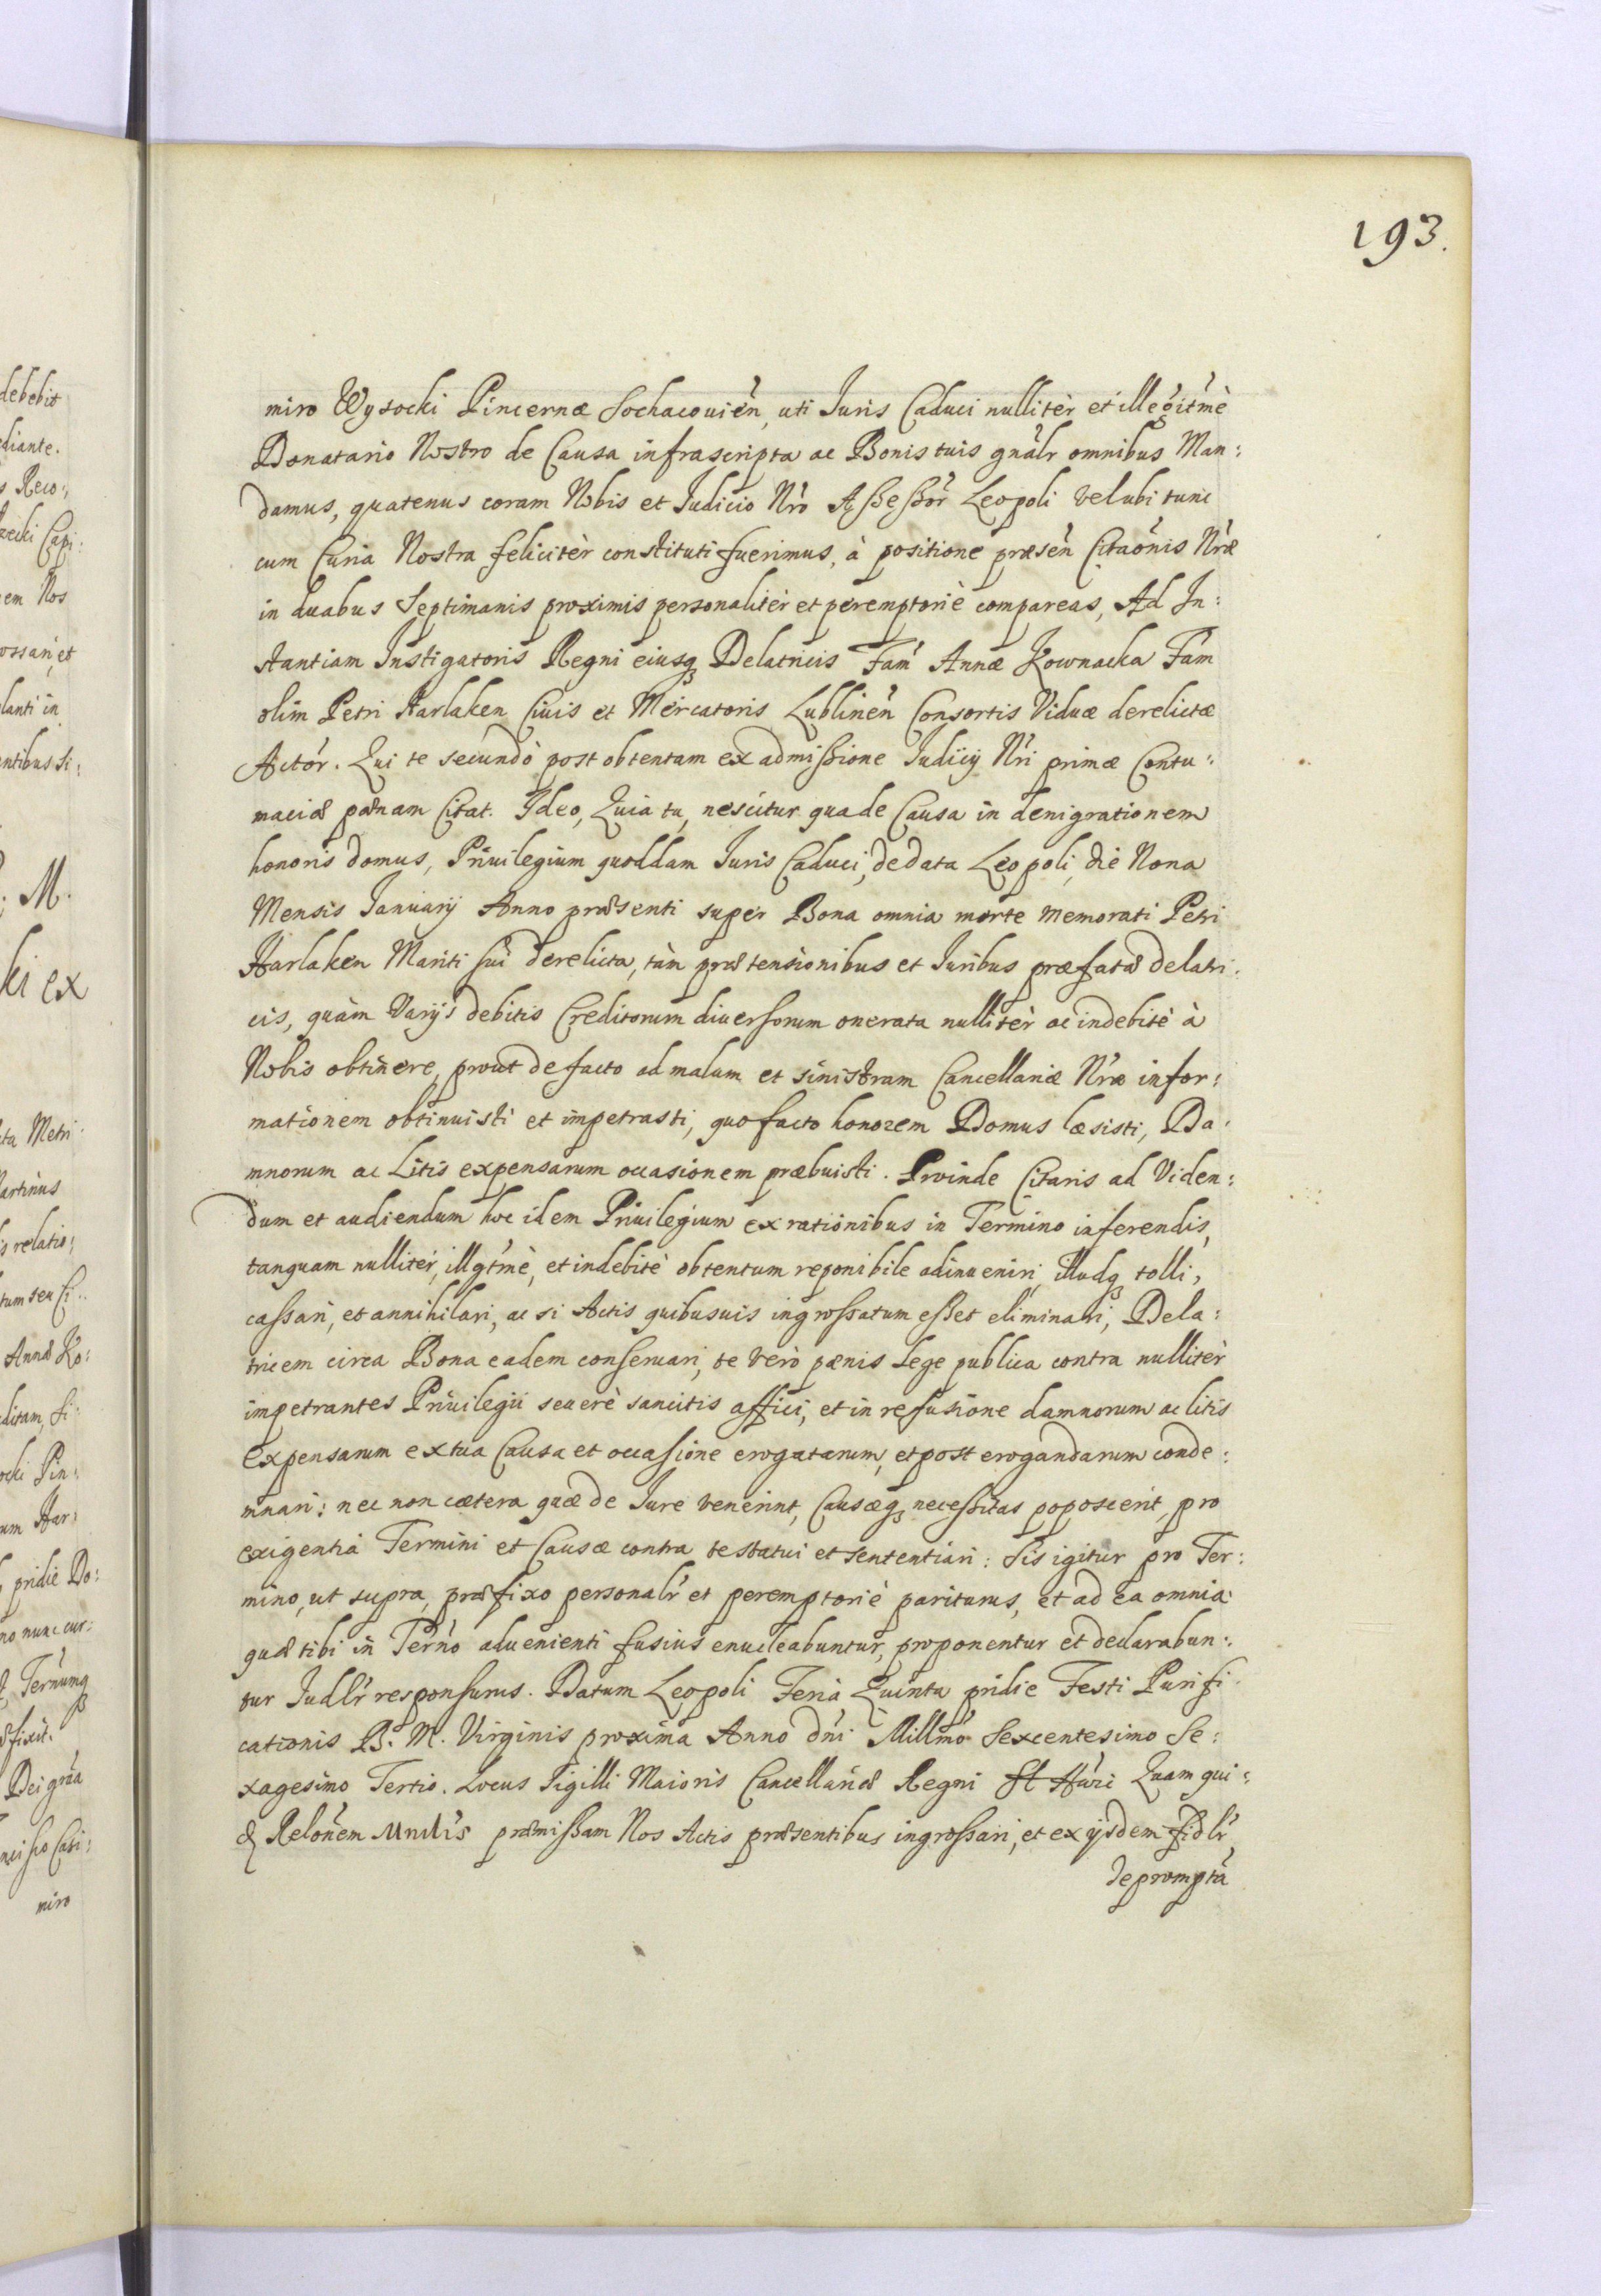 193.
miro Wysocki Pincernæ Sochacouien̄, uti Juris Caduci nullitèr et illegit̄mè
Donatario Nostro de Causa infrascripta ac Bonis tuis gnãlr omnibus Man:
damus, quatenus coram Nobis et Judicio Nr̃o Aßeßor̃ Leopoli vel ubi tunc
cum Curia Nostra felicitèr constituti fuerimus, à positione præsen̄ Citaõnis Nr̃æ
in duabus Septimanis proximis personalitèr et peremptoriè compareas, Ad In:
stantiam Instigatoris Regni eiusq; Delatricis Fam̃ Annæ Kownacka Fam̃
olim Petri Harlaken Ciuis et Mercatoris Lublinen̄ Consortis Viduæ derelictæ
Actor̃. Qui te secundò post obtentam ex admißione Judicij Nr̃i primæ Contu:
maciæ pœnam Citat. Ideo, Quia tu, nescitur qua de Causa in denigrationem
honoris domus, Priuilegium quoddam Juris Caduci, de data Leopoli, die Nona
Mensis January Anno præsenti super Bona omnia morte memorati Petri
Harlaken Mariti sui derelicta, tàm prætensionibus et Juribus præfatæ delatri:
cis, quàm Varijs debitis Creditorum diuersorum onerata nullitèr ac indebitè à
Nobis obtinere, prout de facto ad malam et sinistram Cancellariæ Nr̃æ infor:
mationem obtinuisti et impetrasti, quo facto honorem Domus læsisti, Da:
mnorum ac Litis expensarum occasionem præbuisti. Proinde Citaris ad Viden:
dum et audiendum hoc idem Priuilegium ex rationibus in Termino inferendis,
tanquam nullitèr, illgt̃mè, et indebitè obtentum reponibile adinueniri, illudq; tolli,
caßari, et annihilari, ac si Actis quibusuis ingroßatum eßet eliminari, Dela:
tricem circa Bona eadem conseruari, te verò pœnis Lege publica contra nullitèr
impetrantes Priuilegii seuerè sancitis affici, et in refusione damnorum ac litis
expensarum ex tua Causa et occasione erogatarum, et post erogandarum conde:
mnari: nec non cætera quæ de Jure venerint, Causæq; neceßitas poposcerit, pro
exigentia Termini et Causæ contra te statui et sententiari: Sis igitur pro Ter:
mino, ut supra, præfixo personalr̃ et peremptoriè pariturus, et ad ea omnia
quæ tibi in Terño aduenienti fusius enucleabuntur, proponentur et declarabun:
tur Judlr̃ responsurus. Datum Leopoli Feria Quinta pridie Festi Purifi:
cationis B. M. Virginis proxima Anno dñi Millm̃o Sexcentesimo Se:
xagesimo Tertio. Locus Sigilli Maioris Cancellariæ Regni Quam qui:
& Relonem Mnilis præmißam Nos Actis præsentibus ingroßari, et ex ijsdem fidlr̃
depromptã
debebit
ediante.
s Reco:
zecki Capi:
em Nos
ossari, et
lanti in
entibus si:
; M.
ki ex
ta Metri:
Martinus
is relatio:
tum seu Ci:
Annæ Ko:
ditam, si:
ocki Pin:
um Har:
pridie Do:
no nunc cur:
Ternumq
fixit.
Dei grãa
ncisco Casi:
miro